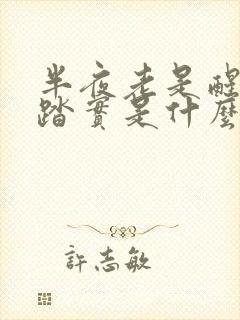 半夜老是醒
踏實是什麼
許志敏